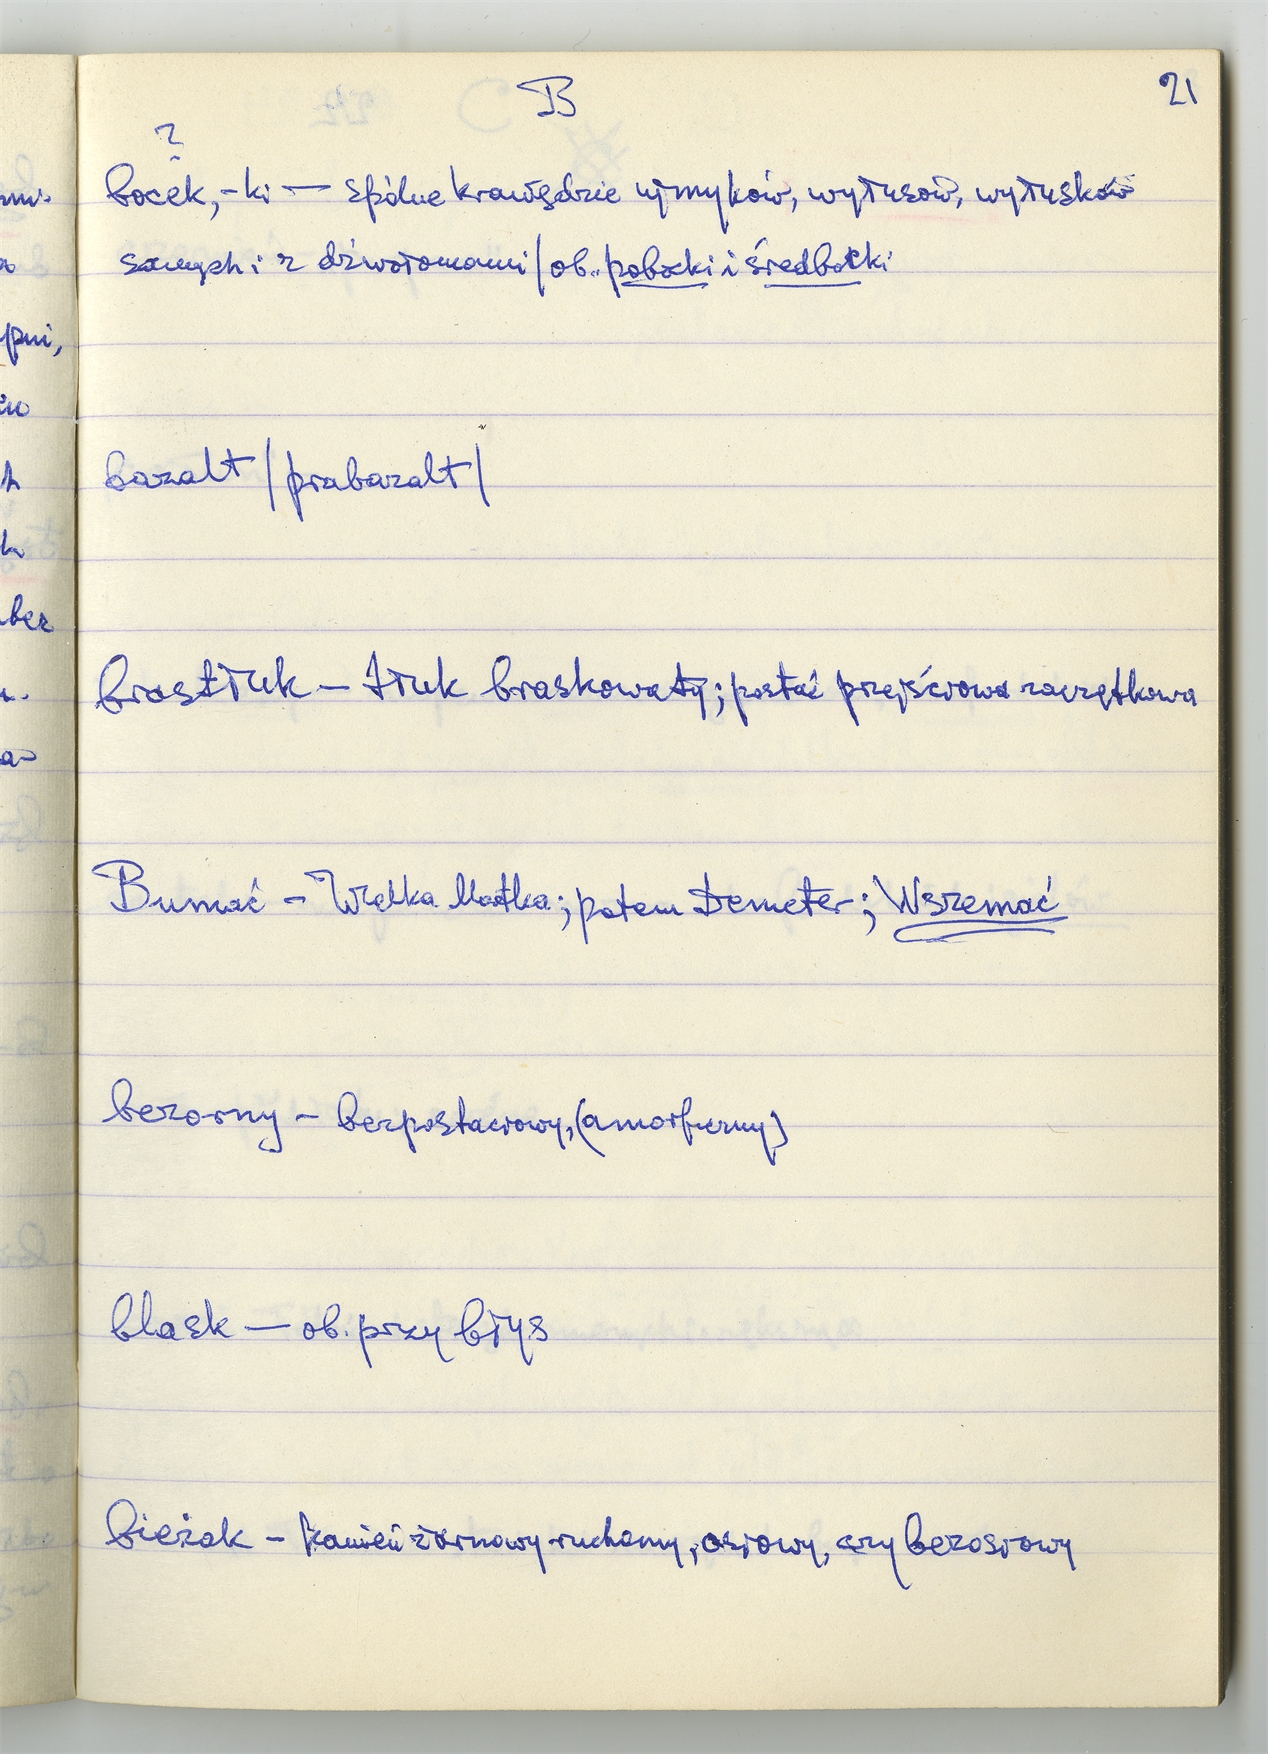 B
21
?
bocek, -ki — spólne krawędzie ujmyków, wyłusów, wyłusków
samych i z dźwołomami / ob. pobocki i średbocki
bazalt / prabazalt /
brastłuk — tłuk braskowaty; postać przejściowa zaczątkowa
Bumać – Wielka Matka; potem Demeter; Wszemać
bezorny – bezpostaciowy, (amorficzny)
blask — ob. przy błys
bieżak – kamień żarnowy ruchomy, osiowy, czy bezosiowy
ypni,
ber